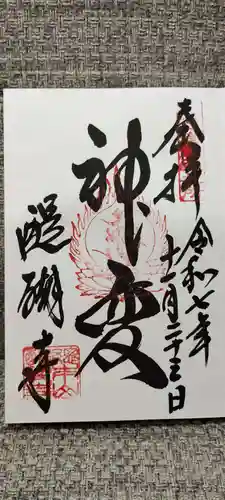 奉拝
令和七年
十一月二十三日
神変
醍醐寺